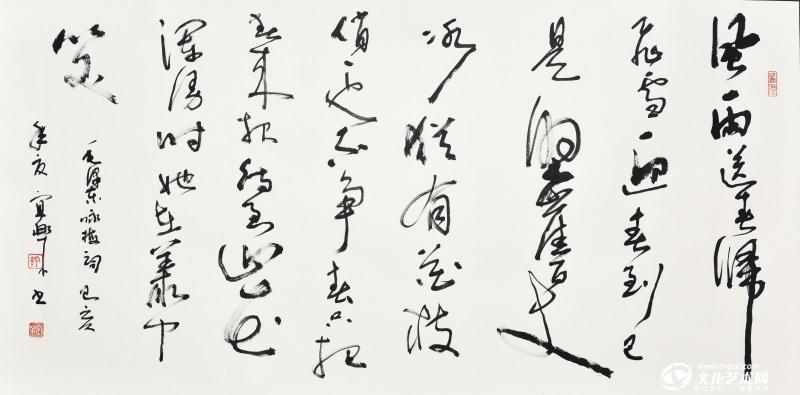 风雨送春归
飞雪迎春到已
是悬崖百丈
冰犹有花枝
俏也不争春只把
春来报待到山花
烂漫时她在丛中
笑
毛泽东咏梅词 己亥
年夏 宜兴 书
www.orgcc.com
文化艺术网